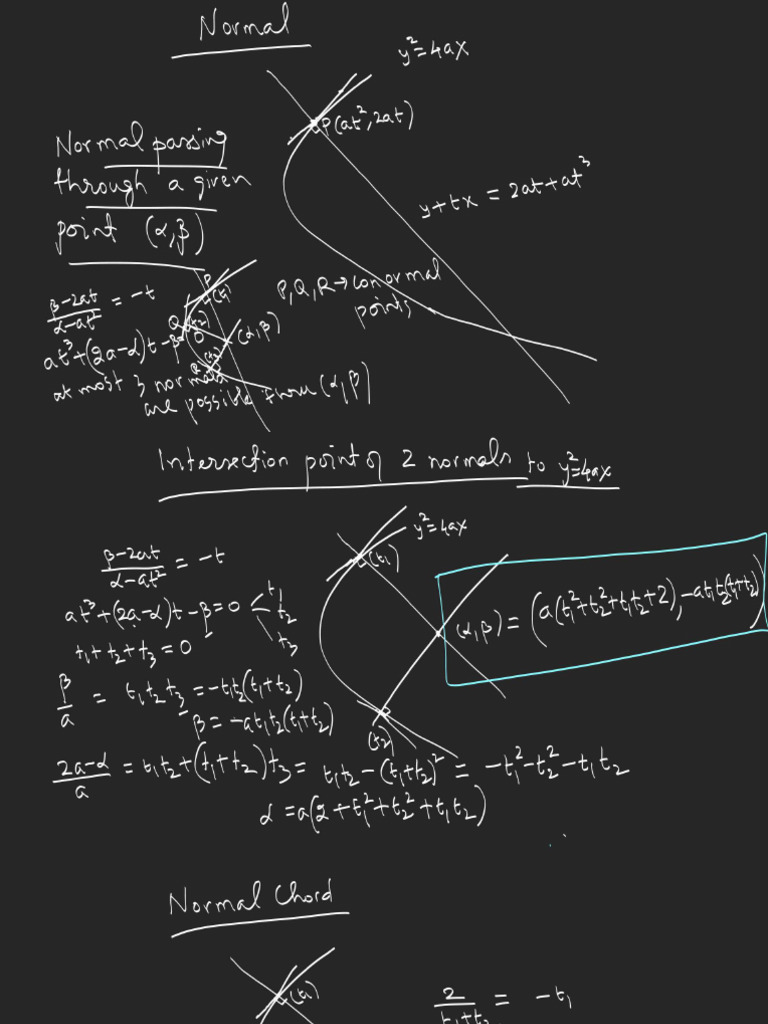 Normal
y²=4ax
P(at²,2at)
Normal passing
through a given
point (α,β)
y+tx = 2at+at³
P
(t₁)
P,Q,R→conormal
points
(β-2at)/(α-at²) = -t
Q
(t₂)
(α,β)
at³+(2a-α)t-β=0
at most 3 normals
are possible thru (α,β)
Intersection point of 2 normals to y²=4ax
y²=4ax
(t₁)
(β-2at)/(α-at²) = -t
at³+(2a-α)t-β=0 t₁
t₂
t₃
(α,β) = (a(t₁²+t₂²+t₁t₂+2), -at₁t₂(t₁+t₂))
t₁+t₂+t₃=0
β/a = t₁t₂t₃ = -t₁t₂(t₁+t₂)
β = -at₁t₂(t₁+t₂)
(t₂)
(2a-α)/a = t₁t₂+(t₁+t₂)t₃ = t₁t₂-(t₁+t₂)² = -t₁²-t₂²-t₁t₂
α = a(2+t₁²+t₂²+t₁t₂)
Normal Chord
(t₁)
2/(t₁+t₂) = -t₁